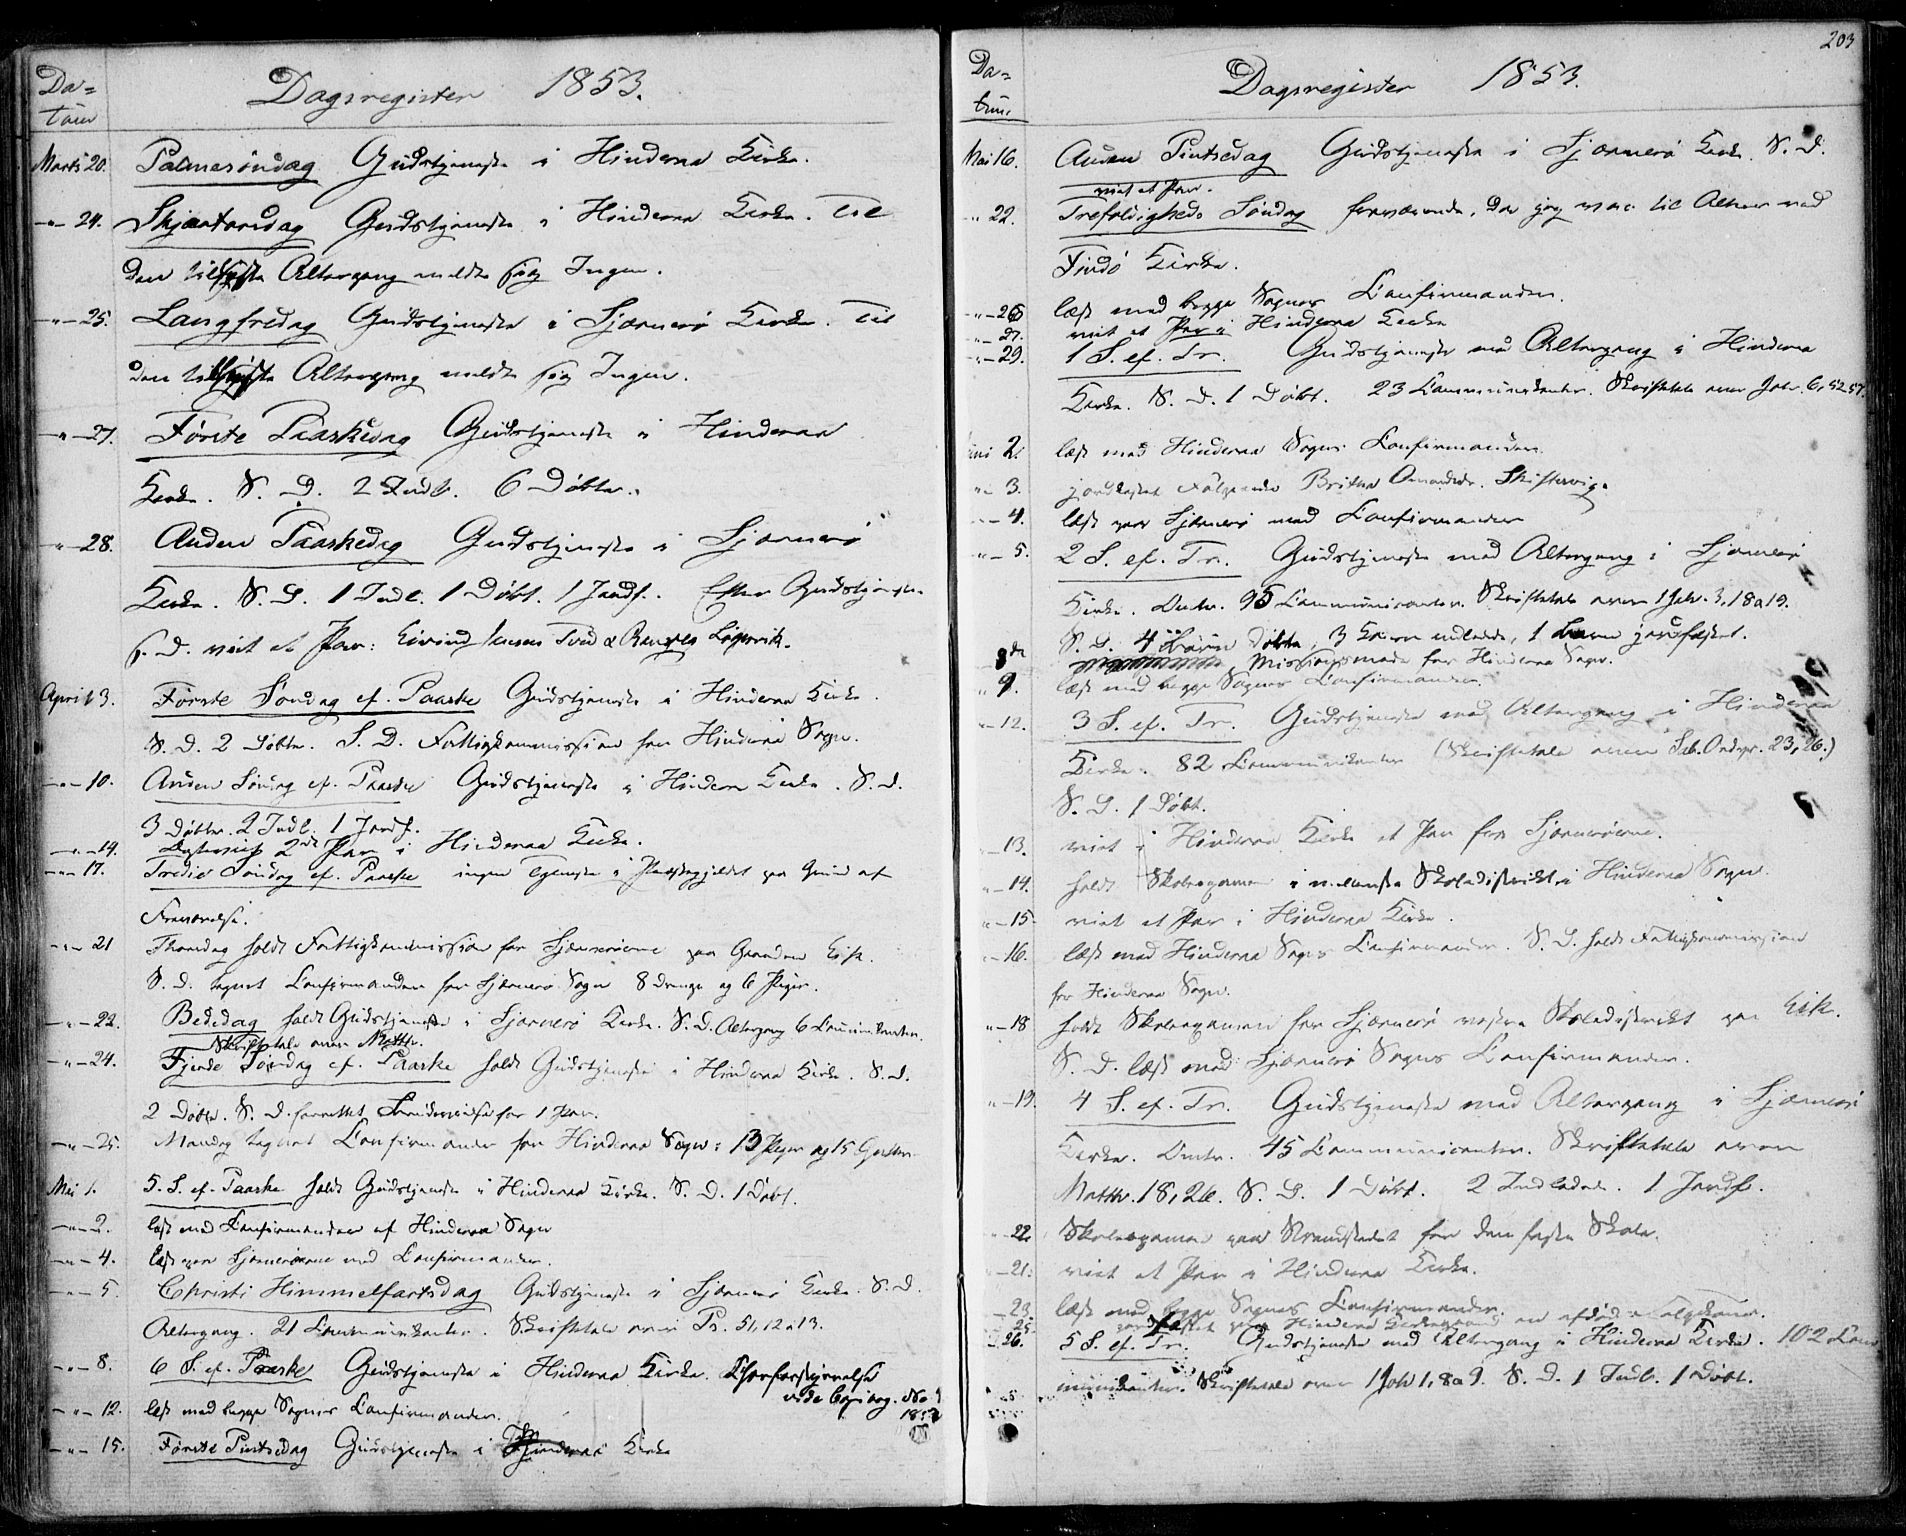 Da=
tum
Dagsregister 1853.
Marts 20. Palmesöndag Gudstjeneste i Hinderaa Kirke.
-"- 24. Skjærtorsdag Gudstjeneste i Hinderaa Kirke. Til
den tillyste Altergang meldte sig Ingen.
-"- 25. Langfredag Gudstjeneste i Sjærnerö Kirke. Til
den tillyste Altergang meldte sig Ingen.
-"- 27. Förste Paaskedag Gudstjeneste i Hinderaa
Kirke. S. D. 2 Indl. 6 Döbte.
-"- 28. Anden Paaskedag Gudstjeneste i Sjærnerö
Kirke. S. D. 1 Indl. 1 Döbt. 1 Jordf. Efter Gudstjeneste
s. D. viet et Par: Eivind Jensen
April 3. Förste Söndag ef. Paaske Gudstjeneste i Hinderaa Kirke.
S. D. 2 Döbte. S. D. Fattigkommission for Hinderaa Sogn.
-"- 10. Anden Söndag ef. Paaske Gudstjeneste i Hinderaa Kirke. S. D.
3 Döbte. 2 Indl. 1 Jordf.
-"- 14. 2de Par i Hinderaa Kirke.
-"- 17. Tredie Söndag ef. Paaske ingen Tjeneste i Præstegjeldet paa Grund af
Fraværelse.
-"- 21 Thorsdag holdt Fattigkommission for Sjærneröerne paa Gaarden Eik.
S. D. tegnet Confirmander for Sjærnerö Sogn 8 Drenge og 6 Piger.
-"- 22. Bededag holdt Gudstjeneste i Sjærnerö Kirke. S. D. Altergang 6 Communikanter.
Skriftetale over Matth.
-"- 24. Fjerde Söndag ef. Paaske holdt Gudstjeneste i Hinderaa Kirke. S. D.
2 Döbte. S. D. forrettet for 1 Par.
-"- 25. Mandag tegnet Confirmander for Hinderaa Sogn: 13 Piger og 15 Gutter
Mai 1. 5. S. ef. Paaske holdt Gudstjeneste i Hinderaa Kirke. S. D. 1 Döbt.
-"- 2. læst med Confirmander af Hinderaa Sogn
-"- 4. læst paa Sjærneröerne med Confirmander.
-"- 5. Christi Himmelfartsdag Gudstjeneste i Sjærnerö Kirke. S. D.
Altergang. 21 Communikanter. Skriftetale over Ps. 51, 12 a 13.
-"- 8. 6 S. ef. Paaske Gudstjeneste i Hinderaa Kirke.
vide Copibog. No
-"- 12. læst med begge Sognes Confirmander.
-"- 15. Förste Pintsedag Gudstjeneste i Hinderaa Kirke
203
Da=
tum.
Dagsregister 1853.
Mai 16. Anden Pintsedag Gudstjeneste i Sjærnerö Kirke. S. D.
viet et Par.
-"- 22. Trefoldigheds Söndag fraværende, da jeg var til Alters ved
Findö Kirke.
-"- 26 læst med begge Sognes Confirmander.
-"- 27. viet et Par i Hinderaa Kirke
-"- 29. 1 S. ef. Tr. Gudstjeneste med Altergang i Hinderaa
Kirke. S. D. 1 Döbt. 23 Communikanter. Skriftetale over Joh. 6, 52-57.
Juni 2. læst med Hinderaa Sogns Confirmander.
-"- 3. jordfæstet Britha
-"- 4. læst paa Sjærnerö med Confirmander
-"- 5. 2 S. ef. Tr. Gudstjeneste med Altergang i Sjærnerö
Kirke. Omtr. 95 Communicanter. Skriftetale over 1 Joh. 3, 18 a 19.
S. D. 4 Börn Döbte, 3 Koner indledte, 1 Barn jordfæstet.
8de Missionsmöde for Hinderaa Sogn.
-"- 9. læst med begge Sognes Confirmander.
-"- 12. 3 S. ef. Tr. Gudstjeneste med Altergang i Hinderaa
Kirke. 82 Communikanter (Skriftetale over Sal. Ordspr. 23, 26.)
S. D. 1 Döbt.
-"- 13. viet i Hinderaa Kirke et Par fra Sjærneröerne.
-"- 14. holdt Skoleexamen i Skoledistrikt i Hinderaa Sogn.
-"- 15 viet et Par i Hinderaa Kirke.
-"- 16. læst med Hinderaa Sogns Confirmander. S. D. holdt Fattigkommission
for Hinderaa Sogn.
-"- 18 holdt Skoleexamen for Sjærnerö vestre Skoledistrikt paa Eik.
S. D. læst med Sjærnerö Sogns Confirmander.
-"- 19. 4 S. ef. Tr. Gudstjeneste med Altergang i Sjærnerö
Kirke. Omtr. 45 Communicanter. Skriftetale over
Matth. 18, 26. S. D. 1 Döbt. 2 Indledte. 1 Jordf.
-"- 22 Skoleexamen paa Strandstedet for den faste Skole.
-"- 21. viet et Par i Hinderaa Kirke.
-"- 23. læst med begge Sognes Confirmander.
25. jordfæstet paa Hinderaa Kirkegaard en afdöd
-"- 26. 5 S. ef. Tr. Gudstjeneste med Altergang i Hinderaa Kirke. 102 Com
munikanter. Skriftetale over 1 Joh 1, 8 a 9. S. D. 1 Indl. 1 Döbt.